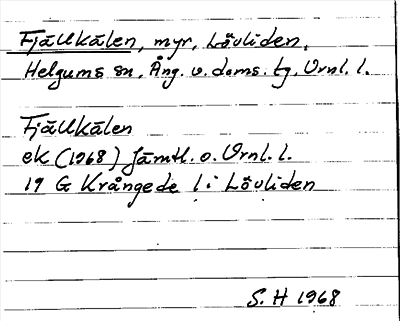 Fjällkälen, myr, Lövliden,
Helgums sn, Ång. v. doms. tg, Vrnl. l.
Fjällkälen
ek (1968) Jämtl. o. Vrnl. l.
19 G Krångede l: Lövliden
S. H 1968